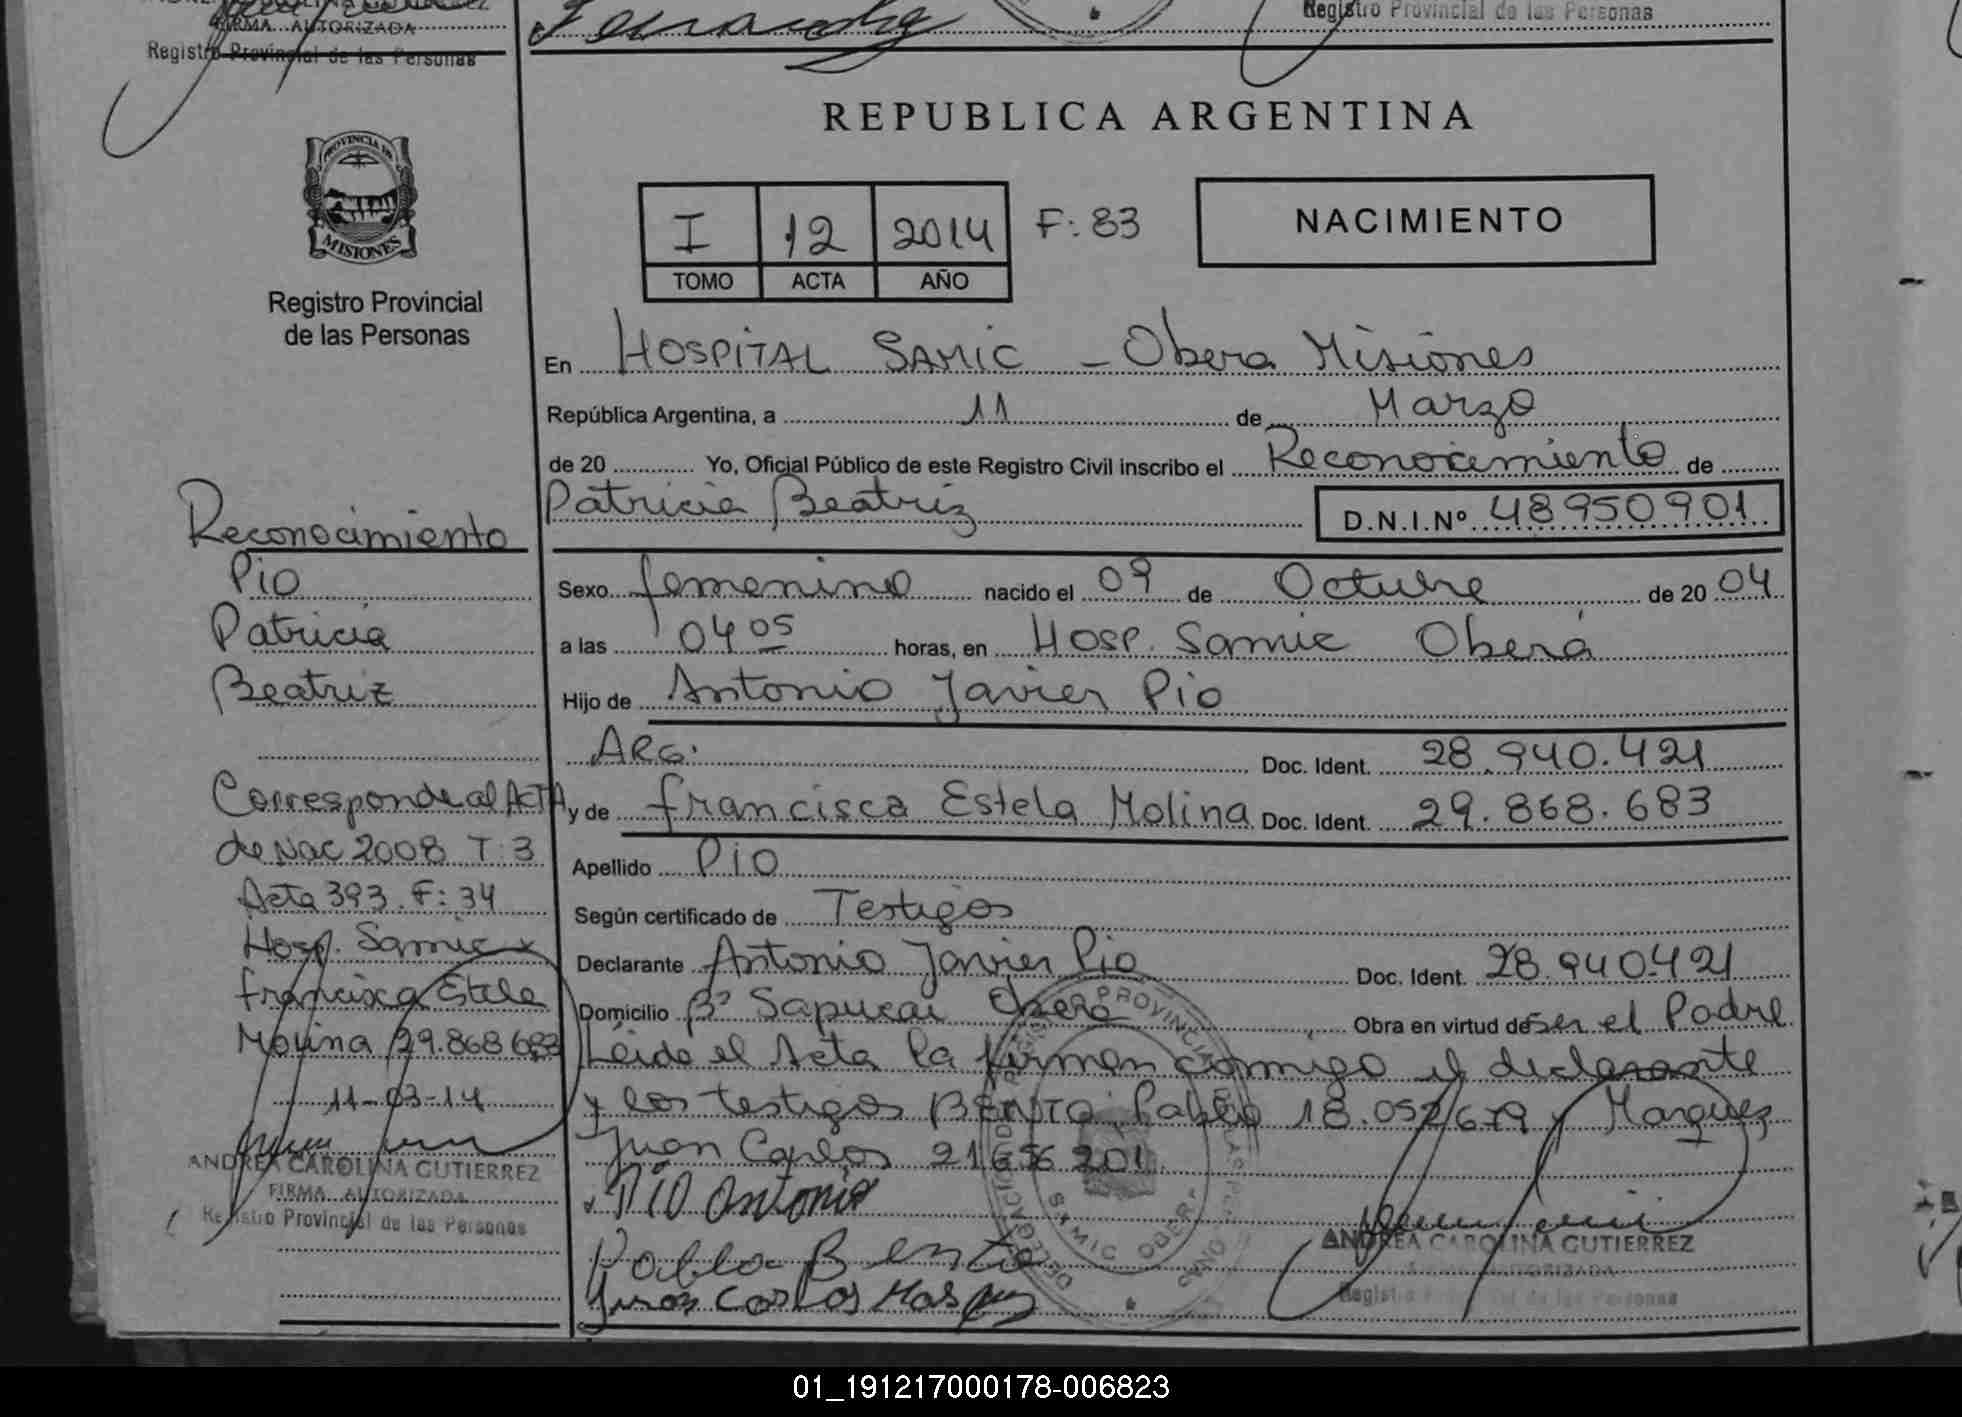 FIRMA AUTORIZADA
Registro Provincial de las Personas
Registro Provincial de las Personas
REPUBLICA ARGENTINA
PROVINCIA DE
MISIONES
Registro Provincial
de las Personas
I 12 2014 F: 83
TOMO ACTA AÑO
NACIMIENTO
En HOSPITAL SAMIC - Obera Misiones
República Argentina, a 11 de Marzo
de 20 Yo, Oficial Público de este Registro Civil inscribo el Reconocimiento de
Patricia Beatriz D.N.I.Nº 48950901
Sexo femenino nacido el 09 de Octubre de 20 04
a las 04 05 horas, en Hosp. Samic Oberá
Hijo de Antonio Javier Pio
ARG. Doc. Ident. 28.940.421
y de Francisca Estela Molina Doc. Ident. 29.868.683
Apellido Pio
Según certificado de Testigos
Declarante Antonio Javier Pio Doc. Ident. 28.940.421
Domicilio Bº Sapucai Obera Obra en virtud de ser el Padre
Leida el Acta la firman conmigo el declarante
y los testigos BENITO Pablo 18.052.679 y Marquez
Juan Carlos 21656201
PIO Antonio
Pablo Benito
Juan Carlos Marquez
ANDREA CAROLINA GUTIERREZ
Reconocimiento
Pio
Patricia
Beatriz
Corresponde al ACTA
de Nac 2008 T: 3
Acta 393. F: 34
Hosp. Samic
Francisca Estela
Molina 29.868 683
11-03-14
ANDREA CAROLINA GUTIERREZ
FIRMA AUTORIZADA
Registro Provincial de las Personas
01_191217000178-006823